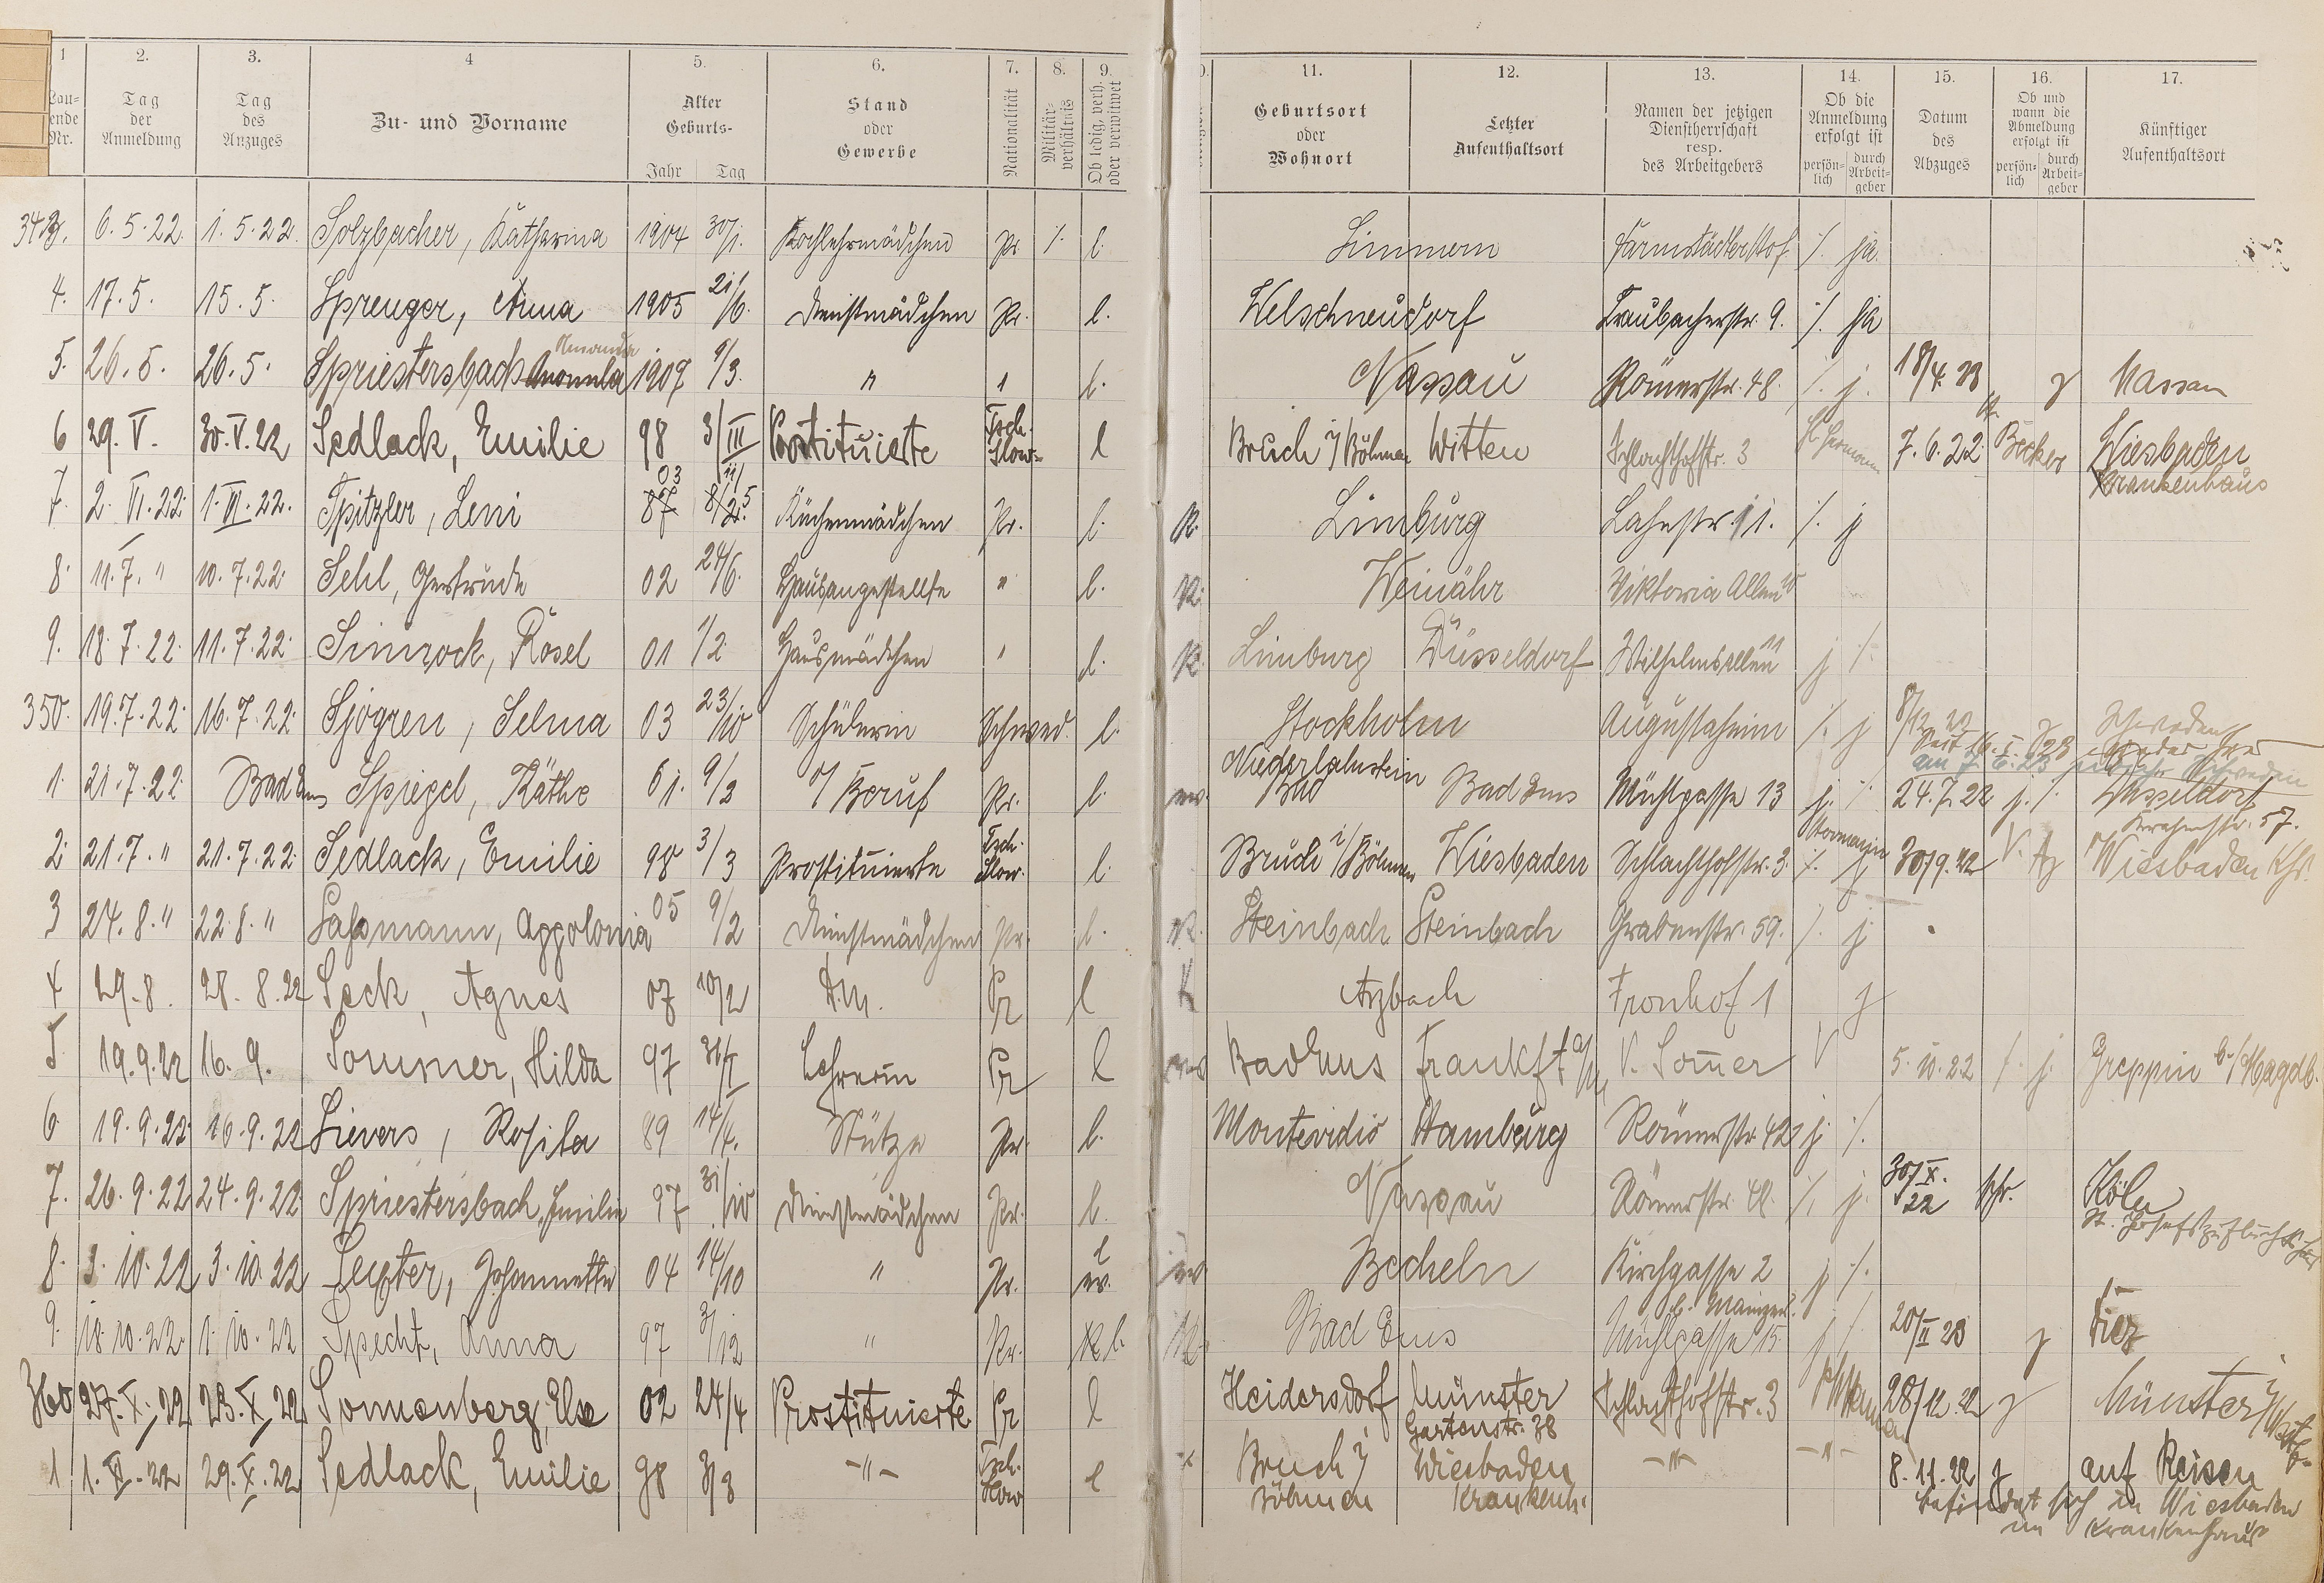 1 2. 3. 4 5. 6. 7. 8. 9. 11. 12. 13. 14. 15. 16. 17.
Lau-
ende
Nr.
Tag
der
Anmeldung
Tag
des
Anzuges
Zu- und Vorname
Alter
Geburts-
Jahr Tag
Stand
oder
Gewerbe
Nationalität
Militär-
verhältnis
Ob ledig, verh.
oder verwitwet
Geburtsort
oder
Wohnort
Letzter
Aufenthaltsort
Namen der jetzigen
Dienstherrschaft
resp.
des Arbeitgebers
Ob die
Anmeldung
erfolgt ist
persön-
lich
durch
Arbeit-
geber
Datum
des
Abzuges
Ob und
wann die
Abmeldung
erfolgt ist
persön-
lich
durch
Arbeit-
geber
Künftiger
Aufenthaltsort
343. 6.5.22. 1.5.22. Solzbacher, Katharina 1904 30/1. Kochlehrmädchen Pr. /. l. Simmern Darmstädter Hof /. ja.
4. 17.5. 15.5. Sprenger, Anna 1905 21/6. Dienstmädchen Pr. l. Welschneudorf Braubacherstr. 9. /. ja
Amanda
5. 26.5. 26.5. Spriestersbach 1907 9/3. " " l. Nassau Römerstr. 48. /. j. 18/4. 23 j Nassau
6 29. V. 30. V. 22 Sedlack, Emilie 98 3/III Prostituierte Tsch. Slow. l Bruch i/Böhmen Witten Schlachthofstr. 3 Hermann 7.6.22 Becker Wiesbaden
Krankenhaus
03 11/5
7. 2. VI. 22. 1. VI. 22. Spitzler, Leni 87 Küchenmädchen Pr. l. K. Limburg Lahnstr. 11. /. j
8. 11.7. " 10.7.22. Sehl, Gertrude 02 24/6. Hausangestellte " l. K. Weinähr Viktoria Allee 10
9. 18.7.22. 11.7.22. Simrock, Rösel 01 1/2 Hausmädchen " l. K. Limburg Düsseldorf Wilhelmsallee 11 j /.
350. 19.7.22. 16.7.22. Sjögren, Selma 03 23/10 Schülerin Schwed. l. Stockholm Augustaheim /. j 8/12 22 j Schweden
Seit 16.I.1923 wieder hier
am 7.6.23 Schweden
1. 21.7.22. Bad Ems Spiegel, Käthe 01. 9/3 o/ Beruf Pr. l. ev. Niederlahnstein Bad Ems Mühlgasse 13 j. /. 24.7.22 j. /. Düsseldorf
57.
2. 21.7. " 21.7.22. Sedlack, Emilie 98 3/3 Prostituierte Tsch. Slow. l. Bruch i/Böhmen Wiesbaden Schlachthofstr. 3. /. j 30/9.22 Wiesbaden
3 24.8. " 22.8. " Saßmann, Appolonia 05 9/2 Dienstmädchen Pr. l. K. Steinbach Steinbach Grabenstr. 59. /. j
4 29.8. 28.8.22 Seck, Agnes 07 10/2 D.M. Pr l K Arzbach Fronhof 1 j
5 19.9.22 16.9. Sommer, Hilda 97 31/I Lehrerin Pr l ev Bad Ems Frankft a/M V. Sommer V 5.10.22 /. j. Greppin b./Magdb.
6. 19.9.22. 16.9.22 Sievers, Rosita 89 14/4. Stütze Pr. l. Montevidio Hamburg Römerstr. 42 j /.
7. 26.9.22 24.9.22 Spriestersbach, Emilie 97 31/10 Dienstmädchen Pr. l. Nassau Römerstr. 48. /. j. 30/X. 22 schr. Köln
St. Josefszufluchtshs
8. 3.10.22 3.10.22 Seupter, Johannette 04 14/10 " Pr. l ev. ev. Becheln Kirchgasse 2 j /.
9. 18.10.22 1.10.22 Specht, Anna 97 3/12 " Pr. l. K. Bad Ems Mühlgasse 15 j /. 20/II 23 j Diez
360 27.X.22 23.X.22 Sonnenberg, Else 02 24/4 Prostituierte Pr l Heidersdorf Münster Schlachthofstr. 3 28/12.22 j Münster i/Westf.
Gartenstr. 38
1 1.XI.22 29.X.22 Sedlack, Emilie 98 3/3 -"- Tsch. Slow l Bruch i Wiesbaden -"- -"- 8.11.22 j auf Reisen
Böhmen Krankenh. befindet sich in Wiesbaden
im Krankenhaus